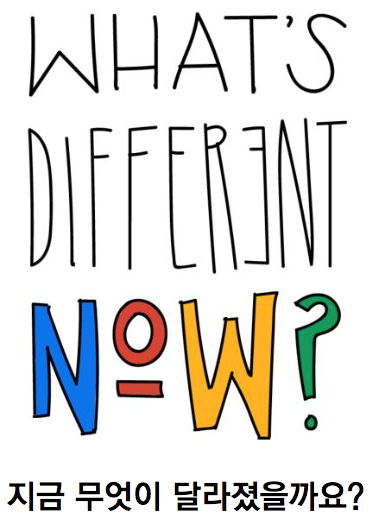 WHAT'S
DIFFERENT
NOW?
지금 무엇이 달라졌을까요?